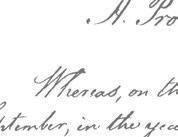 A. Pro
Whereas, on th
ptember, in the year